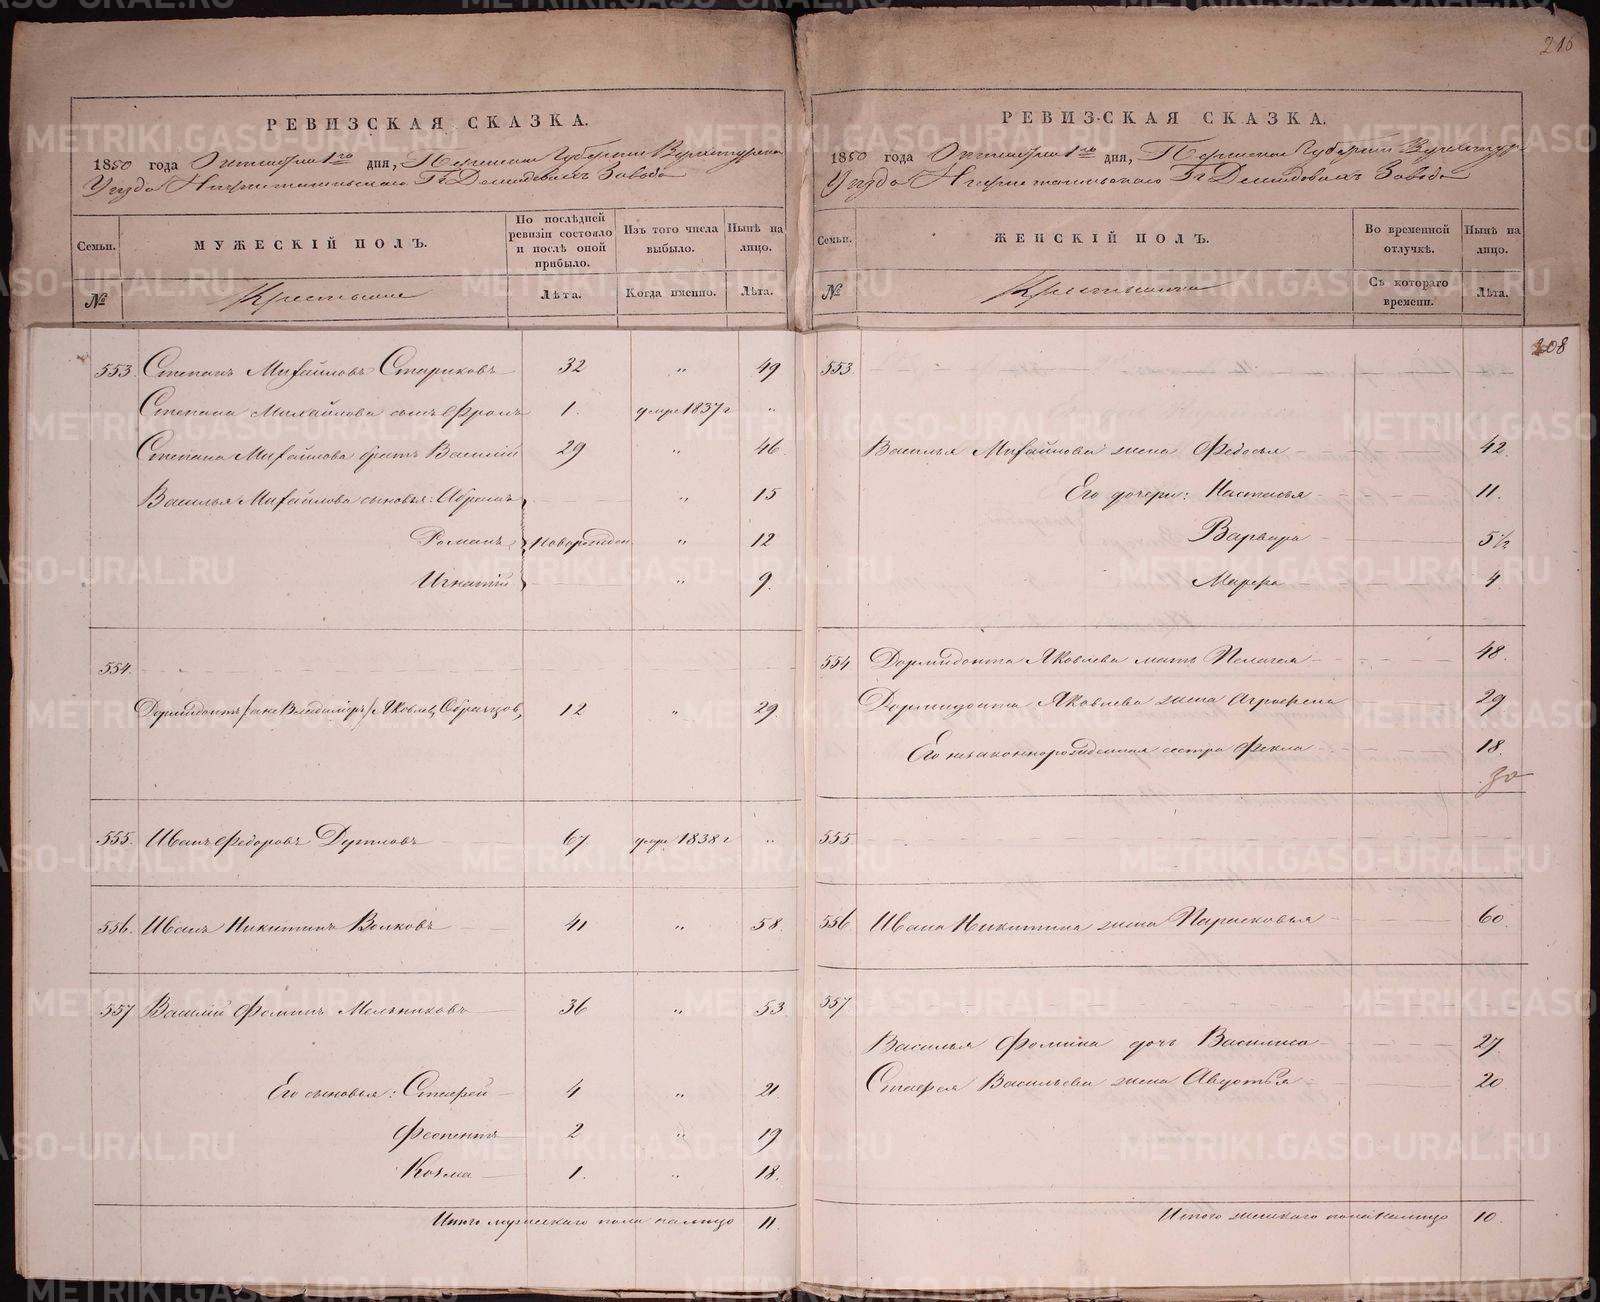 210
РЕВИЗСКАЯ СКАЗКА.
1850 года Октября 1го дня, Пермской Губернии Верхотурскаго
Уезда Нижнетагильскаго Гг Демидовыхъ Завода
Семьи.
МУЖЕСКІЙ ПОЛЪ.
По последней ревизіи состояло и после оной прибыло.
Изъ того числа выбыло.
Ныне на лицо.
№
Крестьяне
Лета.
Когда именно.
Лета.
553. Степанъ Михайловъ Стариковъ 32 " 49
Степана Михайлова сынъ Фролъ 1. умре 1837 г "
Степана Михайлова братъ Василій 29 " 46.
Василья Михайлова сыновья: Абрамъ " 15
Романъ новорожден " 12
Игнатій " 9.
554.
Дормидонтъ /онже Владиміръ/ Яковлевъ Образцов 12 " 29.
555. Иванъ Федоровъ 67. умре 1838 г "
556. Иванъ Никитинъ Волковъ 41 " 58.
557 Василій Фоминъ Мельниковъ 36 " 53.
Его сыновья: Стафей 4 " 21.
Феопентъ 2 " 19
Козма 1. " 18.
Итого мужескаго пола налицо 11.
РЕВИЗСКАЯ СКАЗКА.
1850 года Октября 1го дня, Пермской Губерніи Верхотур
Уезда Нижнетагильскаго Гг Демидовыхъ Завода
Семьи.
ЖЕНСКІЙ ПОЛЪ.
Во временной отлучкѣ.
Ныне на лицо.
№
Крестьянки
Съ котораго времени.
Лета.
208
553
Василья Михайлова жена Федосья 42.
Его дочери: Настасья 11.
Варвара 5 1/2
Марфа 4
554 Дормидонта Яковлева мать Пелагея 48.
Дормидонта Яковлева жена Аграфена 29
Его незаконнорожденная сестра Фекла 18.
30
555
556 Ивана Никитина жена Парасковья 60.
557.
Василья Фомина дочь Василиса 27
Стафея Васильева жена Августья 20
Итого женскаго пола налицо 10.
METRIKI.GASO-URAL.RU